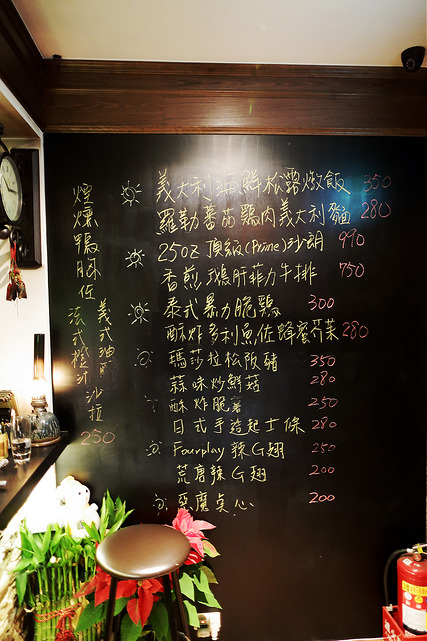 義大利海鮮松露燉飯 350
羅勒蕃茄鷄肉義大利麵 280
25oz 頂級(Prime)沙朗 990
香煎鵝肝菲力牛排 750
泰式暴力脆鷄 300
酥炸多利魚佐蜂蜜芥茉 280
瑪莎拉松阪豬 350
蒜味炒鮮菇 280
酥炸脆薯 250
日式手造起士條 280
Fourplay 辣G翅 250
荒唐辣G翅 200
惡魔点心 200
煙燻鴨胸佐
法式橙汁
義式油醋
沙拉
250